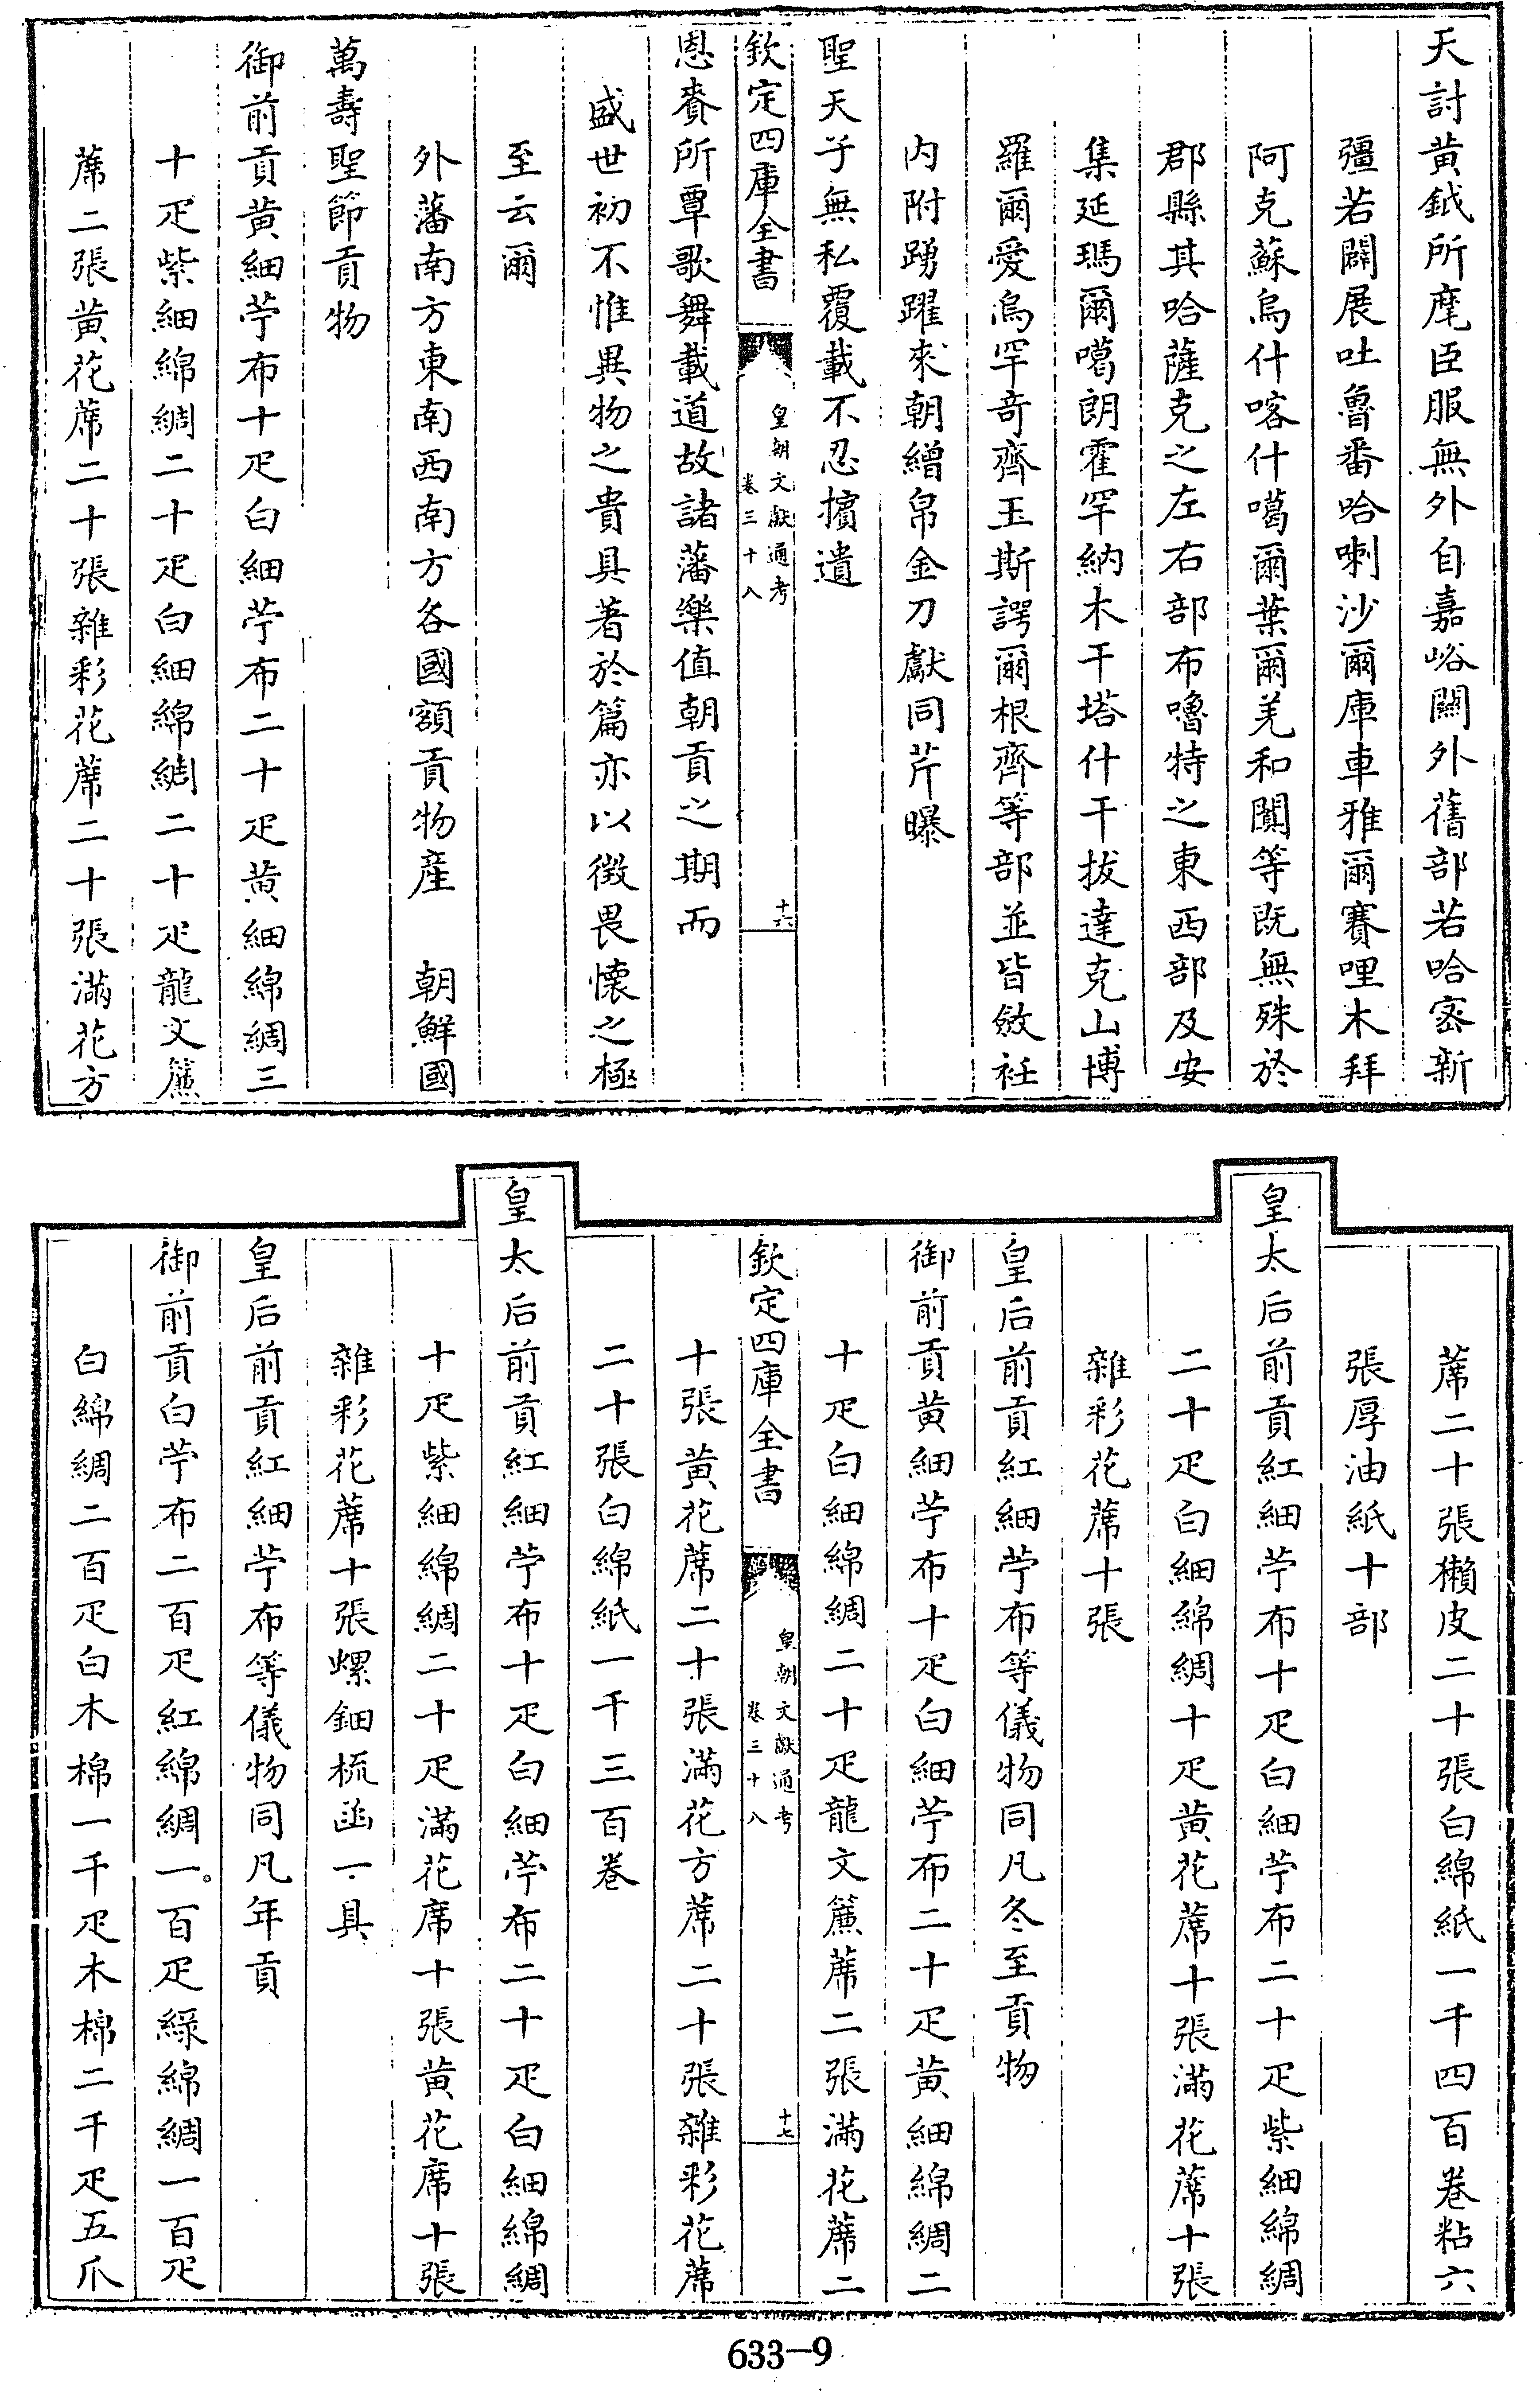 天討黃鉞所麾臣服無外自嘉峪關外舊部若哈宻新
疆若闢展吐魯番哈喇沙爾庫車雅爾賽哩木拜
阿克蘇烏什喀什噶爾葉爾羌和闐等既無殊於
郡縣其哈薩克之左右部布嚕特之東西部及安
集延瑪爾噶朗霍罕納木干塔什干拔達克山博
羅爾愛烏罕竒齊玉斯諤爾根齊等部並皆斂衽
内附踴躍來朝繒帛金刀獻同芹曝
聖天子無私覆載不忍擯遺
欽定四庫全書
皇朝文獻通考
卷三十八
十六
恩賚所覃歌舞載道故諸藩樂值朝貢之期而
盛世初不惟異物之貴具著於篇亦以徴畏懐之極
至云爾
外藩南方東南西南方各國額貢物産 朝鮮國
萬壽聖節貢物
御前貢黄細苧布十疋白細苧布二十疋黄細綿綢三
十疋紫細綿綢二十疋白細綿綢二十疋龍文簾
蓆二張黄花蓆二十張雜彩花蓆二十張滿花方
蓆二十張獺皮二十張白綿紙一千四百卷粘六
張厚油紙十部
皇太后前貢紅細苧布十疋白細苧布二十疋紫細綿綢
二十疋白細綿綢十疋黄花蓆十張滿花蓆十張
雜彩花蓆十張
皇后前貢紅細苧布等儀物同凡冬至貢物
御前貢黄細苧布十疋白細苧布二十疋黄細綿綢二
十疋白細綿綢二十疋龍文簾蓆二張滿花蓆二
欽定四庫全書
皇朝文獻通考
卷三十八
十七
十張黄花蓆二十張滿花方蓆二十張雜彩花蓆
二十張白綿紙一千三百卷
皇太后前貢紅細苧布十疋白細苧布二十疋白細綿綢
十疋紫細綿綢二十疋滿花席十張黄花席十張
雜彩花蓆十張螺鈿梳函一具
皇后前貢紅細苧布等儀物同凡年貢
御前貢白苧布二百疋紅綿綢一百疋綠綿綢一百疋
白綿綢二百疋白木棉一千疋木棉二千疋五爪
633-9